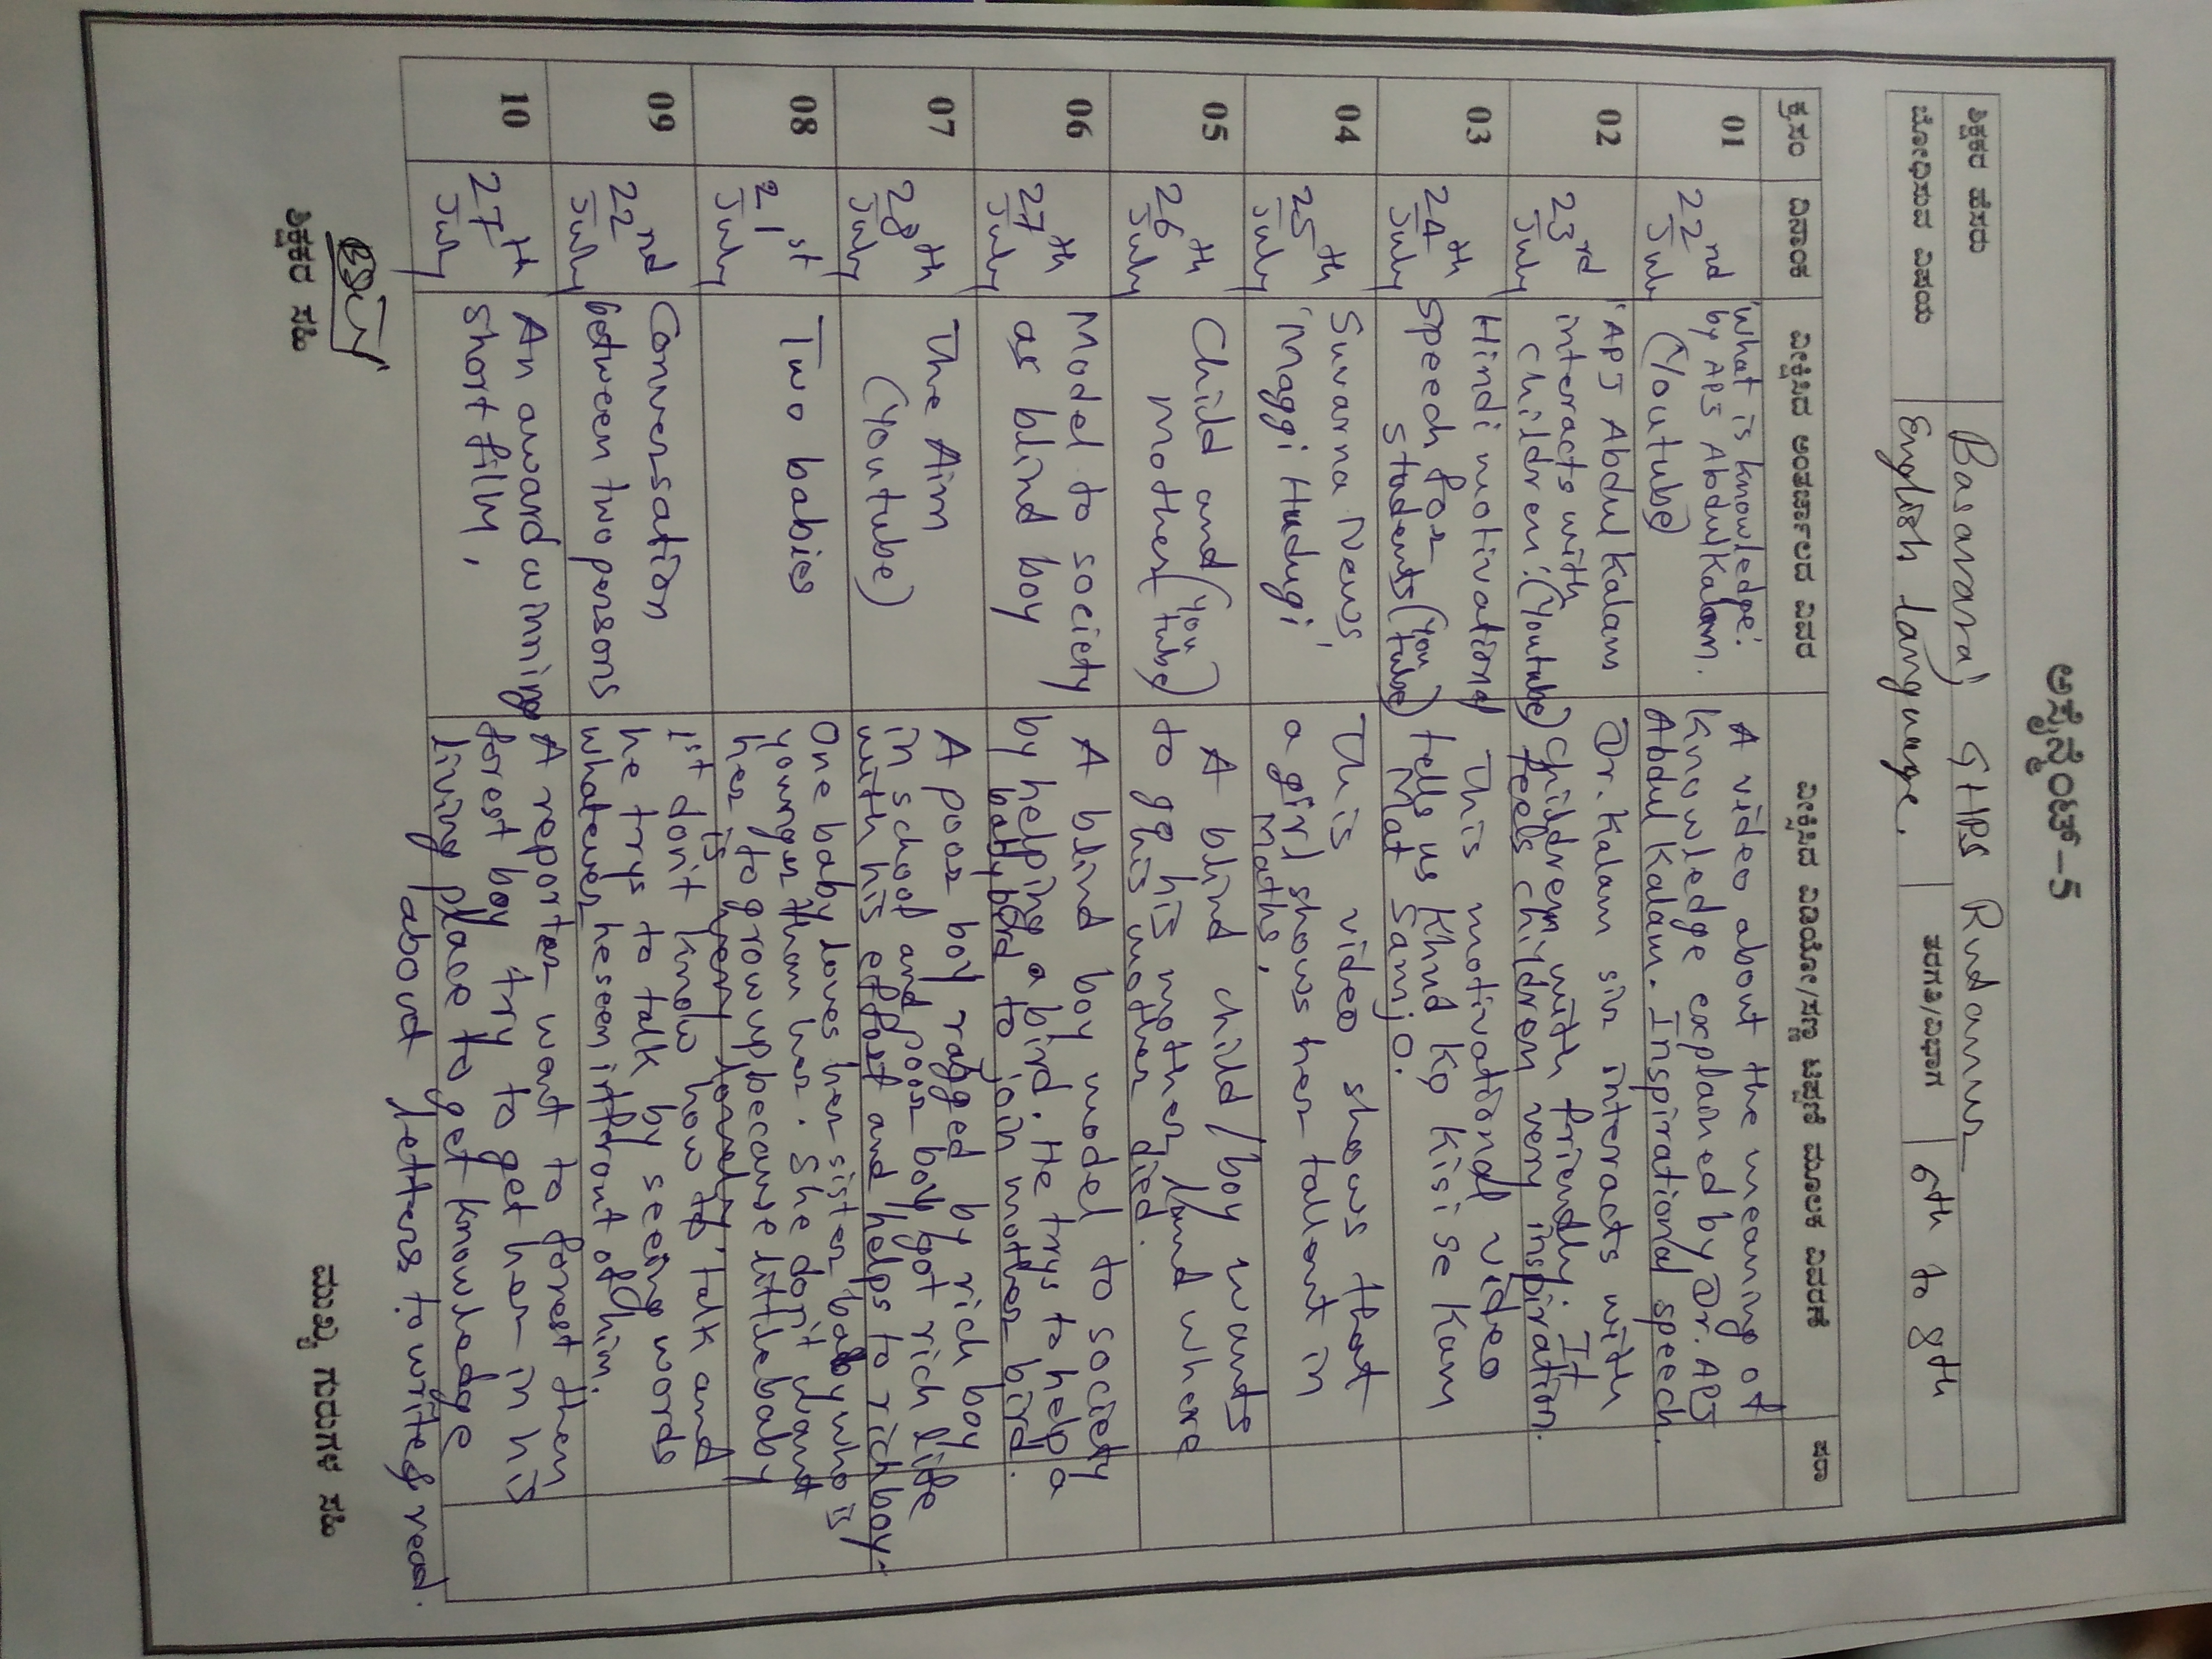 ಅಸೈನ್ಮೆಂಟ್-5
ಶಿಕ್ಷಕರ ಹೆಸರು Basavaraj GHPS Rudanur
ಬೋಧಿಸುವ ವಿಷಯ English Language. ತರಗತಿ/ವಿಭಾಗ 6th to 8th
ಕ್ರ.ಸಂ ದಿನಾಂಕ ವೀಕ್ಷಿಸಿದ ಅಂತರ್ಜಾಲದ ವಿವರ ವೀಕ್ಷಿಸಿದ ವಿಡಿಯೋ/ಸಣ್ಣ ಟಿಪ್ಪಣಿ ಮೂಲಕ ವಿವರಣೆ ಷರಾ
01 22nd July
'What is knowledge'.
by APJ Abdul Kalam.
(Youtube)
A video about the meaning of
knowledge explained by Dr. APJ
Abdul Kalam. Inspirational speech.
02 23rd July
"APJ Abdul Kalam
interacts with
children: (Youtube)
Dr. Kalam sir interacts with
children with friendly. It
feels chirdren very inspiration.
03 24th July
Hindi motivational
Speech for
students (You tube)
This motivational video
tells us Khud ko kisi se kam
Mat Samjo.
04 25th July
Suvarna News,
'Maggi Hudugi
This video shows that
a girl shows her tallent in
Maths.
05 26th July
Child and
mother (You tube)
A blind child/boy wants
to go his mother/and where
his mother died.
06 27th July
Model to society
as blind boy
A blind boy model to society
by helping a bird. He trys to help a
baby bird to join mother bird.
07 28th July
The Aim
(Youtube)
A poor boy ragged by rich boy
in school and poor boy got rich life
with his effort and helps to rich boy.
08 21st July
Two babies
One baby loves her sister baby who is
younger than her. She don't want
her to grow up because little baby
is very lovely.
09 22nd July
Conversation
between two persons
1st don't know how to talk and
he trys to talk by seeing words
whatever he seen infront of him.
10 27th July
An award winning
short film,
A reporter want to forest then
forest boy try to get her in his
living place to get knowledge
about letters to write & read.
ಶಿಕ್ಷಕರ ಸಹಿ ಮುಖ್ಯ ಗುರುಗಳ ಸಹಿ